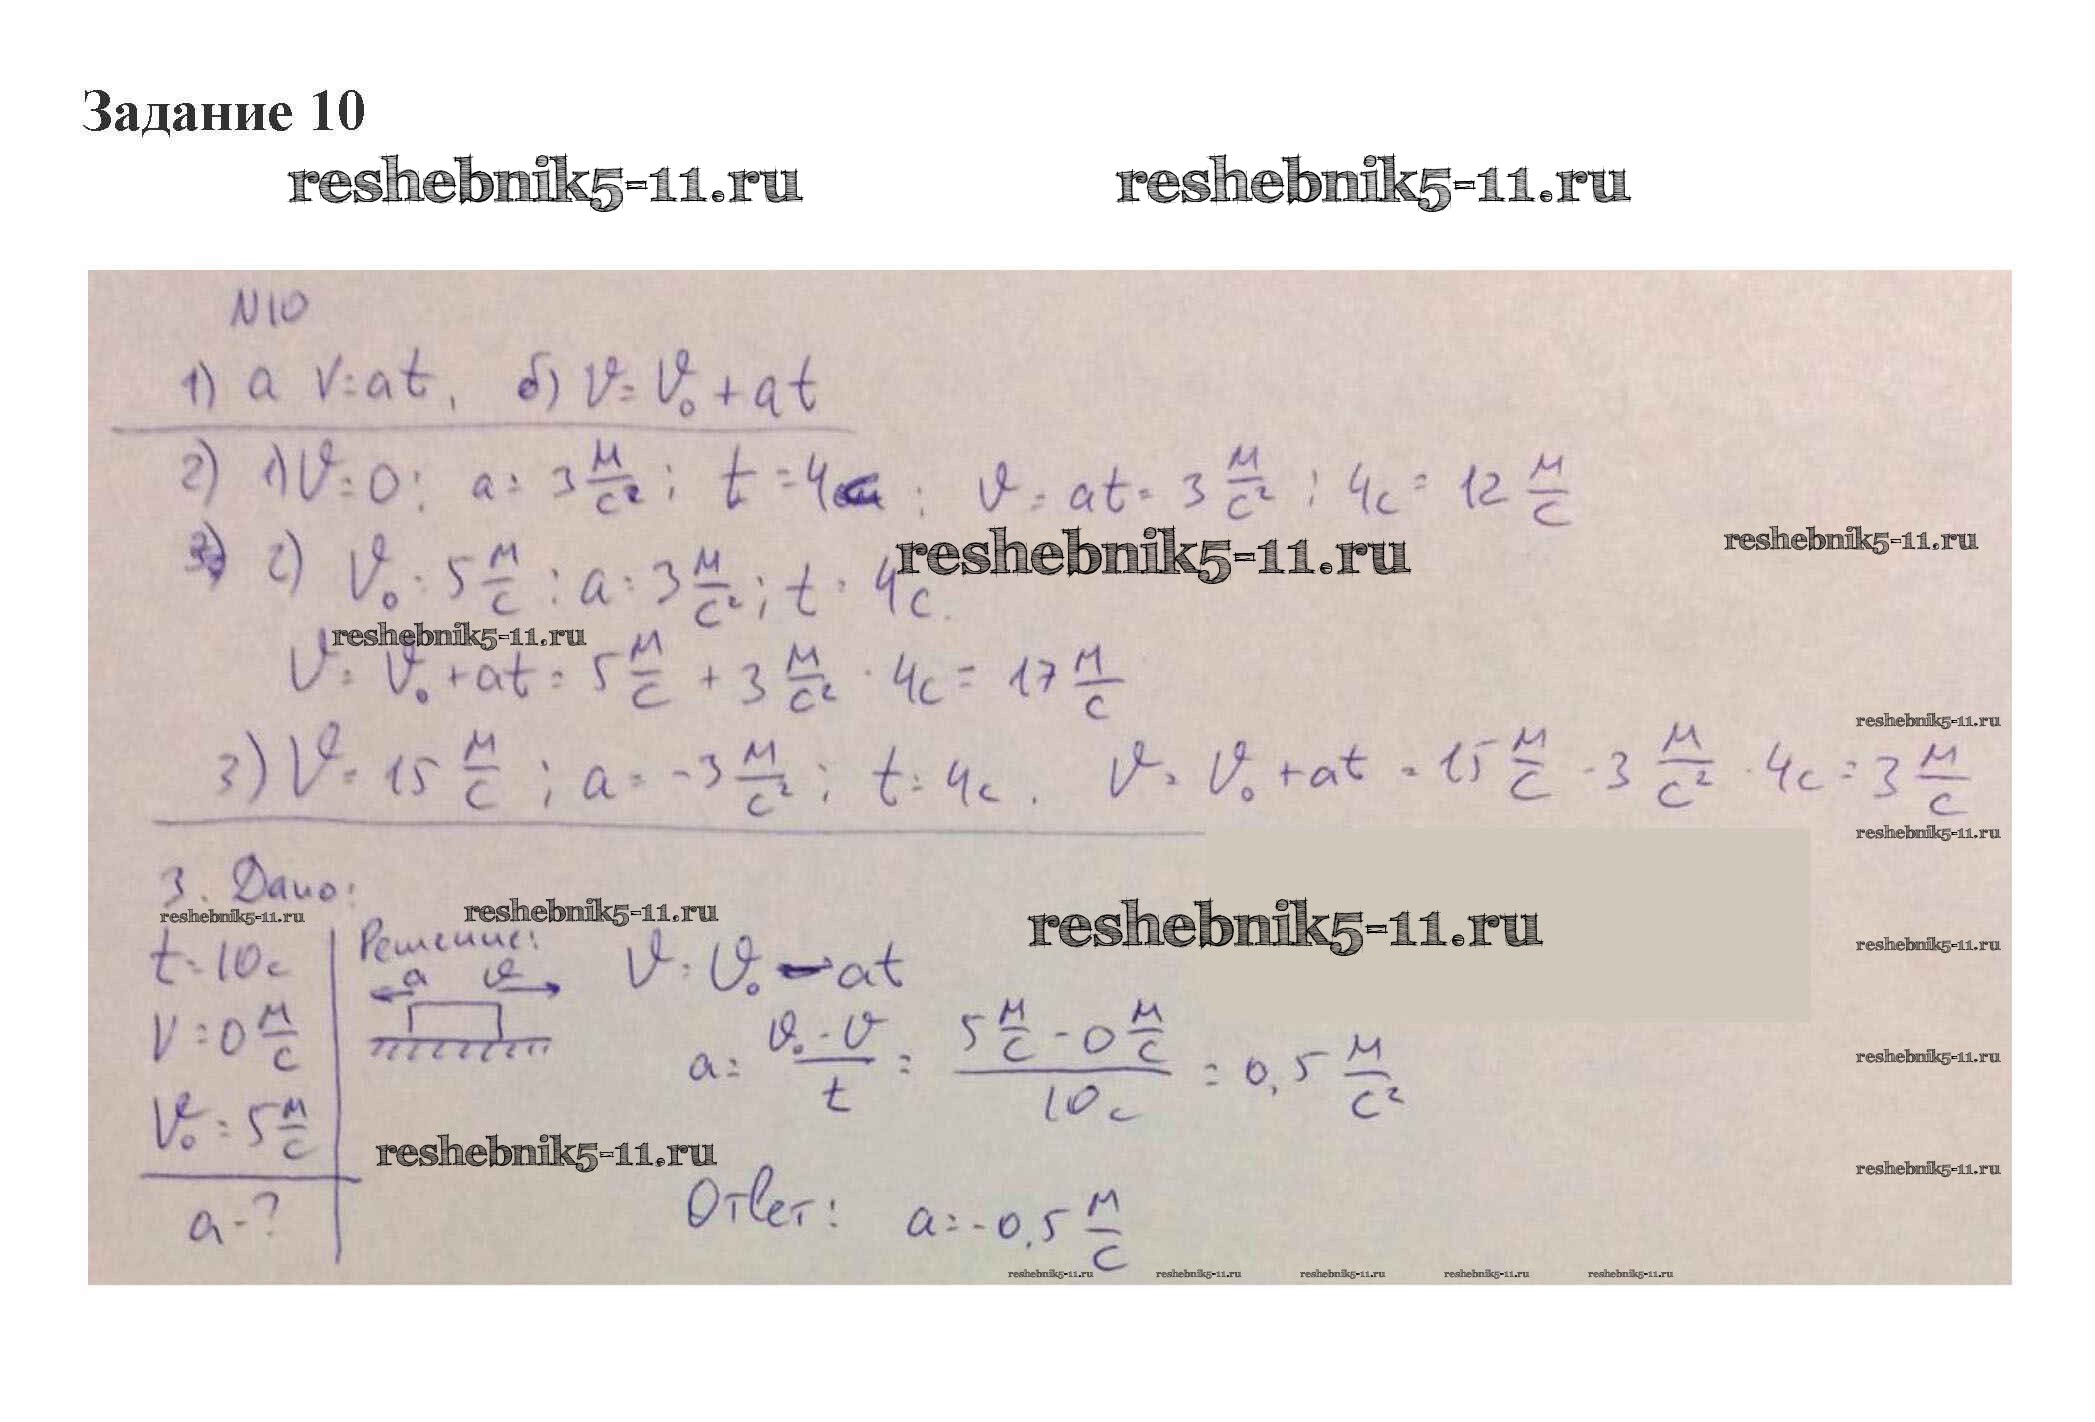 Задание 10
reshebnik5-11.ru reshebnik5-11.ru
N10
1) а v=at, б) v=v₀+at
2) 1) v=0; a=3 м/с²; t=4с; v=at=3 м/с² · 4с=12 м/с
reshebnik5-11.ru reshebnik5-11.ru
2) v₀=5 м/с; a=3 м/с²; t=4с.
reshebnik5-11.ru
v=v₀+at=5 м/с+3 м/с²·4с=17 м/с
reshebnik5-11.ru
3) v=15 м/с; a=-3 м/с²; t=4с. v=v₀+at=15 м/с-3 м/с²·4с=3 м/с
reshebnik5-11.ru
3. Дано:
reshebnik5-11.ru reshebnik5-11.ru reshebnik5-11.ru reshebnik5-11.ru
t=10с Решение: v=v₀-at
a v
v=0 м/с a=(v₀-v)/t=(5 м/с-0 м/с)/10с=0,5 м/с²
reshebnik5-11.ru
v₀=5 м/с
reshebnik5-11.ru reshebnik5-11.ru
a-? Ответ: a=-0,5 м/с
reshebnik5-11.ru reshebnik5-11.ru reshebnik5-11.ru reshebnik5-11.ru reshebnik5-11.ru